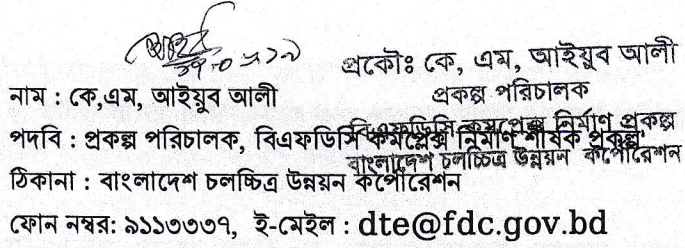 প্রকৌঃ কে, এম, আইয়ুব আলী
প্রকল্প পরিচালক
বিএফডিসি কমপ্লেক্স নির্মাণ প্রকল্প
বাংলাদেশ চলচ্চিত্র উন্নয়ন কর্পোরেশন
নাম : কে,এম, আইয়ুব আলী
পদবি : প্রকল্প পরিচালক, বিএফডিসি কমপ্লেক্স নির্মাণ শীর্ষক প্রকল্প,
ঠিকানা : বাংলাদেশ চলচ্চিত্র উন্নয়ন কর্পোরেশন
ফোন নম্বর: ৯১১৩৩৩৭, ই-মেইল : dte@fdc.gov.bd